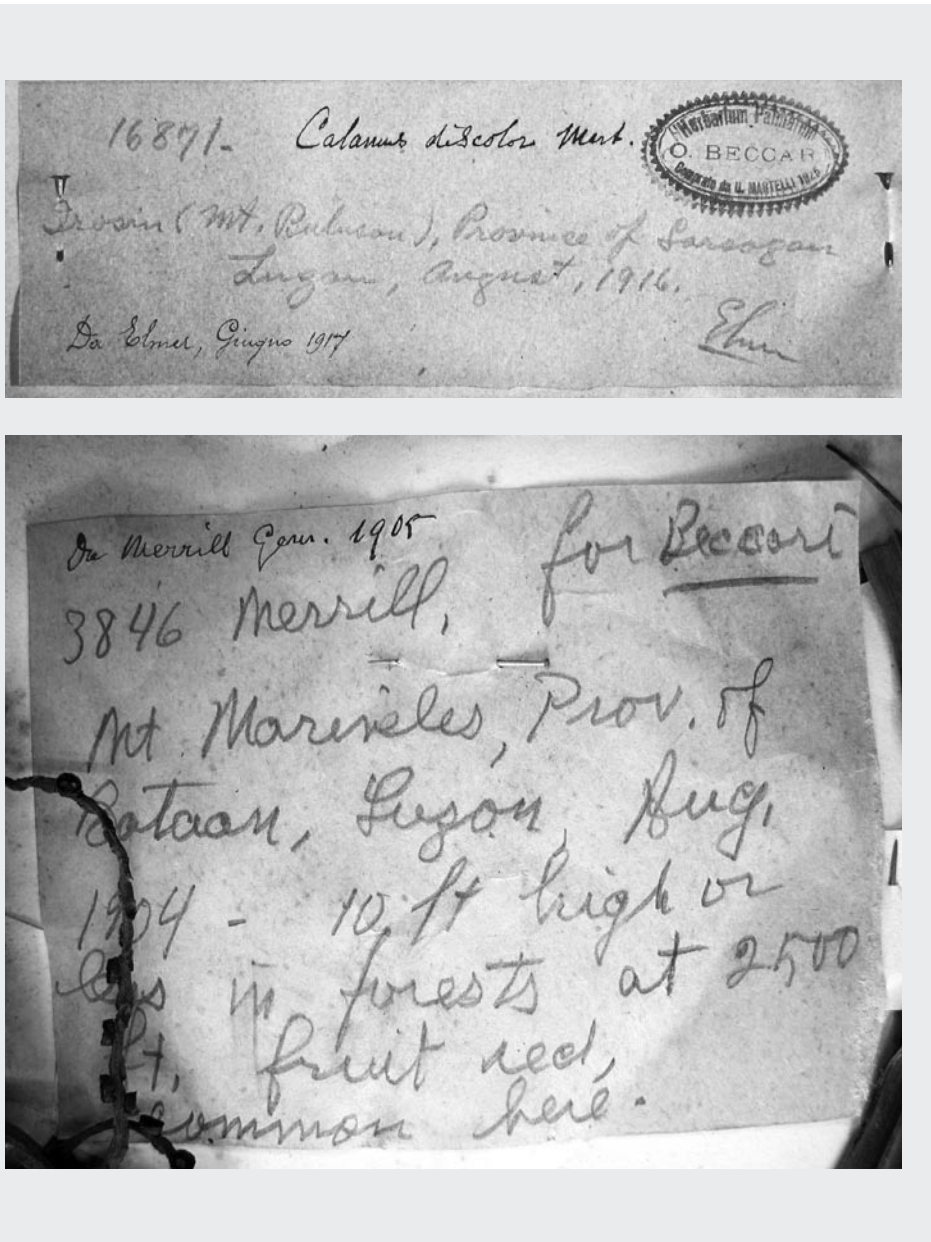 16871-
Calamus discolor Mart.
Herbarium Palmarum
O. BECCARI
Comprato da U. MARTELLI 1925
Irosin (Mt. Bulusan), Province of Sorsogon
Luzon, August, 1916.
Elmer
Da Elmer, Giugno 1917
Da Merrill Genn. 1905
for Beccari
3846 Merrill,
Mt. Mariveles, Prov. of
Bataan, Luzon, Aug.
1904 - 10 ft high or
less in forests at 2500
ft, fruit red,
common here.